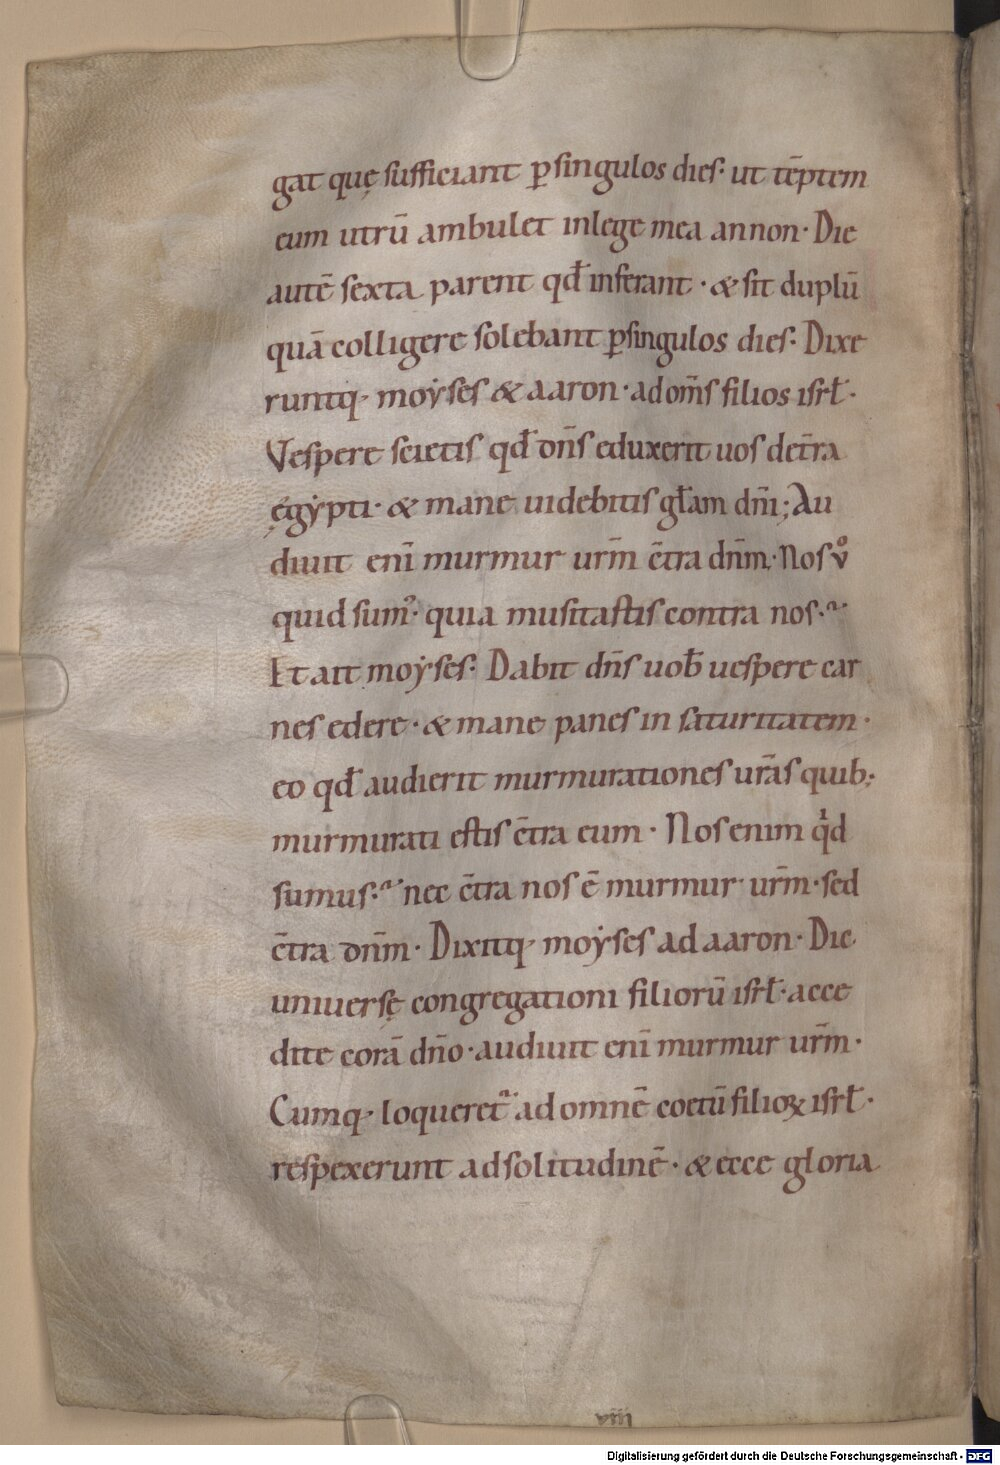 gat quę sufficiant ꝑsingulos dies· ut tēptem
eum utrū ambulet inlege mea annon· Die
autē sexta parent qđ inferant· & sit duplū
quā colligere solebant ꝑsingulos dies· Dixe
runtq· moẏses & aaron· ad om̄s filios isrł·
Vespere scietis qđ dn̄s eduxerit uos det̄ra
ęgẏpti· & mane uidebitis gła̅m dn̄i; Au
diuit enī murmur urm̄ c̄tra dn̄m· Nos ůͦ
quid sumꝰ· quia musitastis contra nos·
Et ait moẏses· Dabit dn̄s uob̄ uespere car
nes edere· & mane panes in saturitatem·
eo qđ audierit murmurationes ur̄as quib;
murmurati estis c̄tra eum· Nos enim qͥd
sumus· nec c̄tra nos ē murmur urm̄· sed
c̄tra dn̄m· Dixitq· moẏses ad aaron· Dic
uniuersę congregationi filiorū isrł· acce
dite corā dn̄o· audiuit enī murmur urm̄·
Cumq· loqueret᷑ ad omnē coetū filioꝝ isrł·
respexerunt ad solitudinē· & ecce gloria
viii
Digitalisierung gefördert durch die Deutsche Forschungsgemeinschaft - DFG